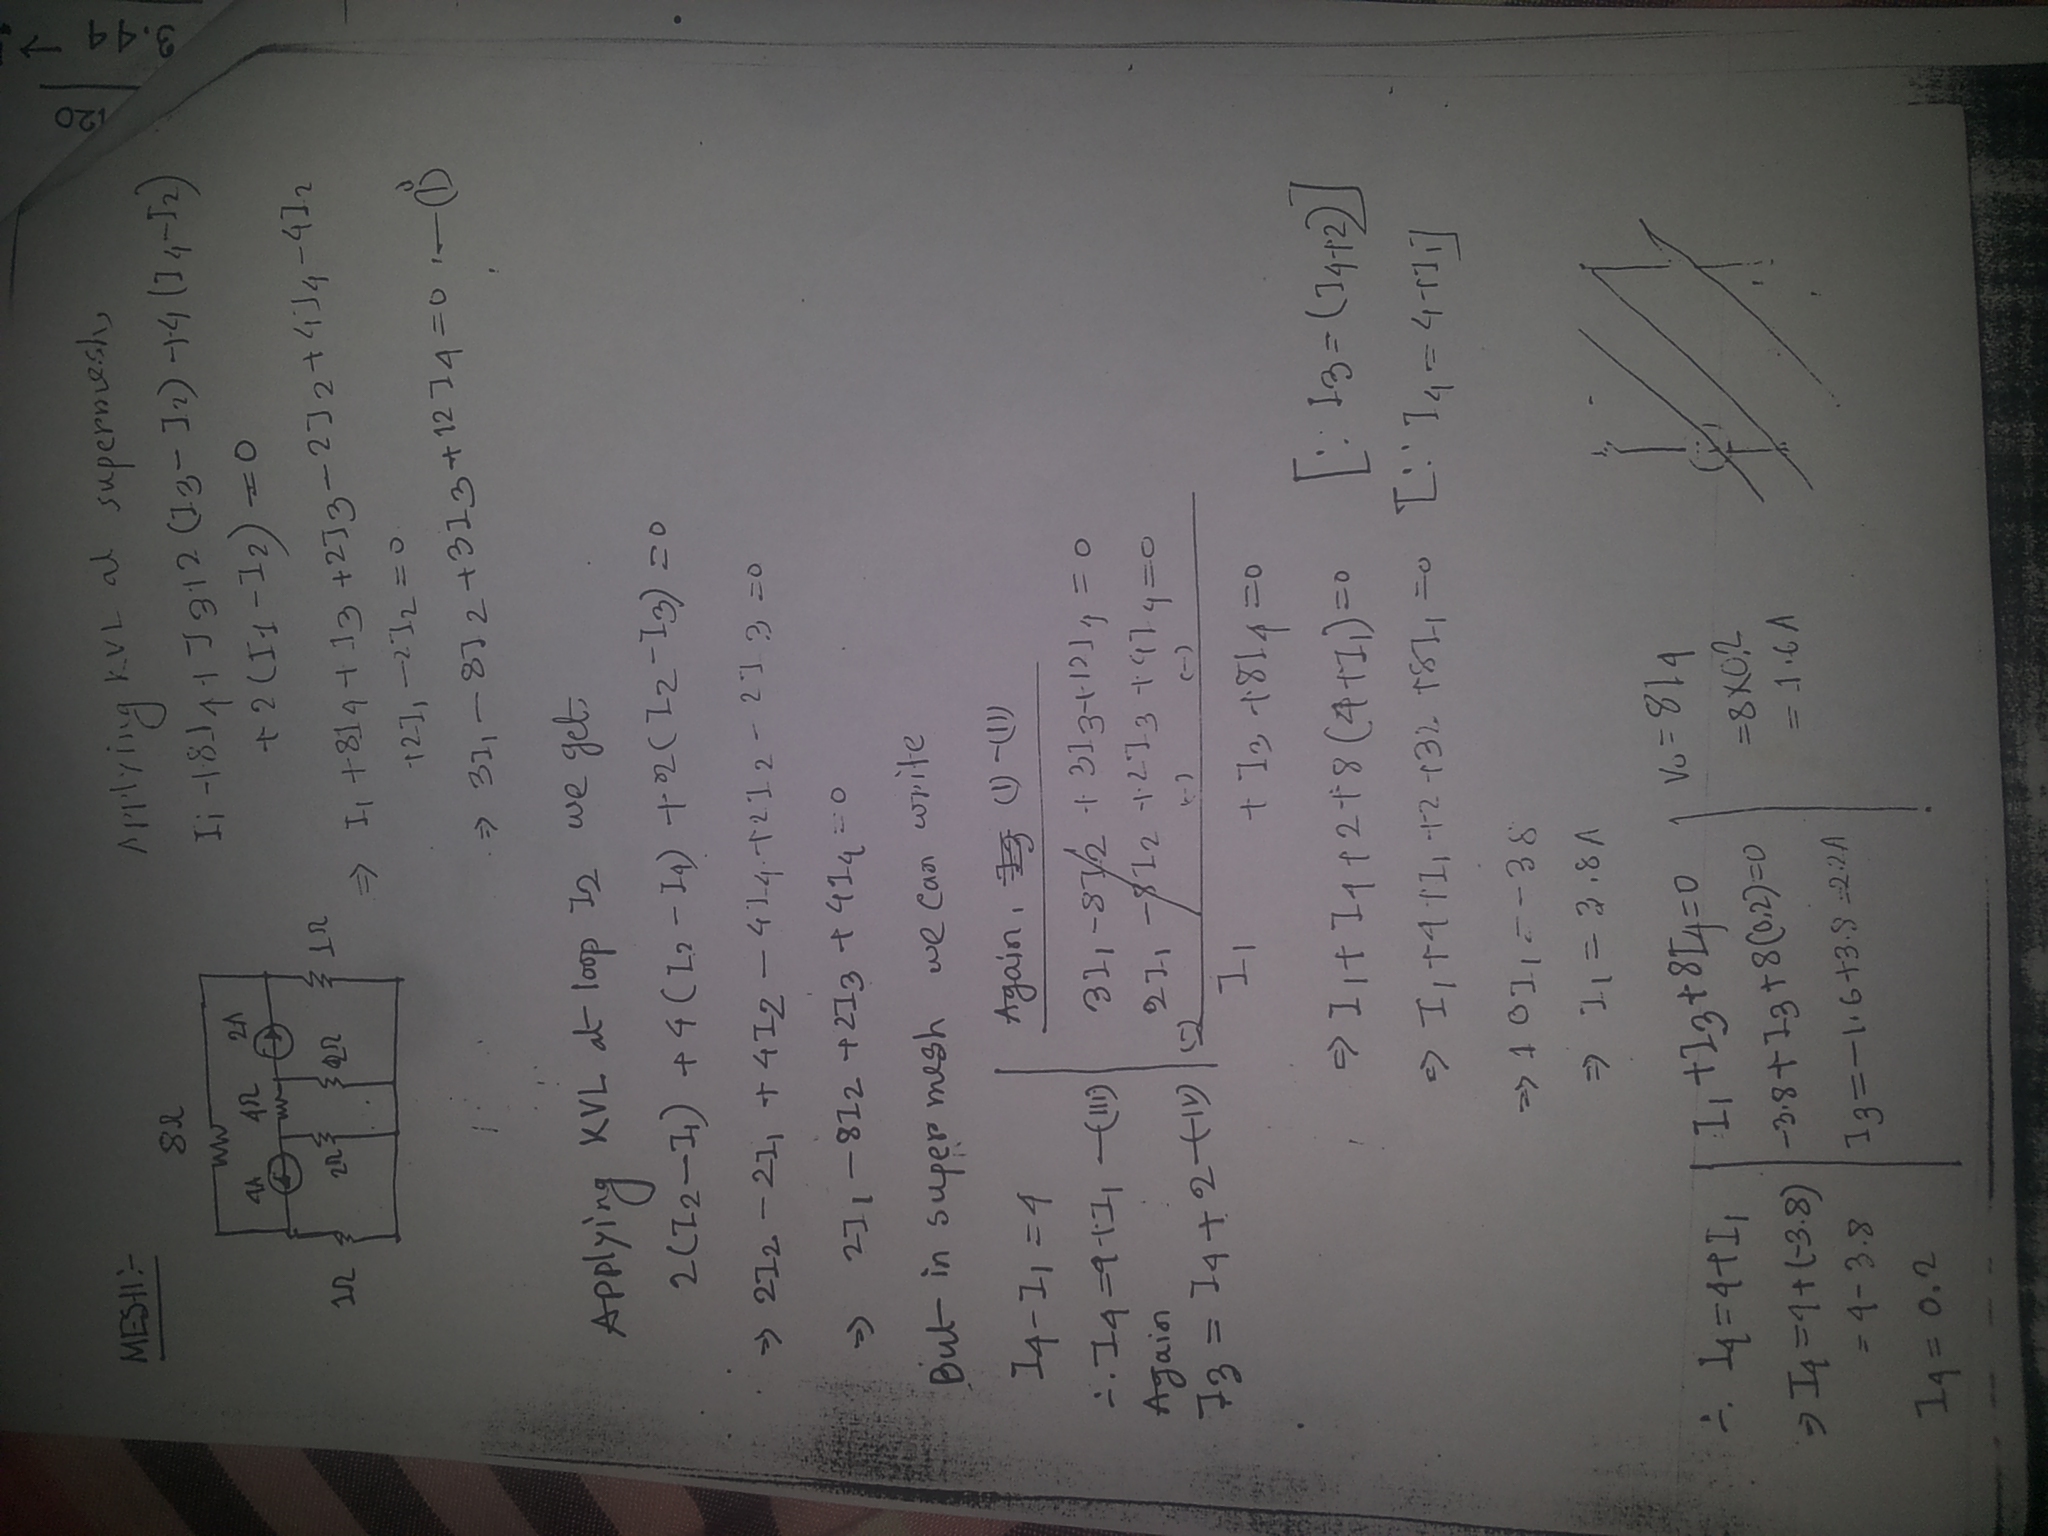 MESH:-
8Ω
4A 4Ω 2A
1Ω 2Ω 2Ω 1Ω
Applying KVL at supermesh,
I₁ + 8I₄ + I₃ + 2 (I₃ - I₂) + 4 (I₄ - I₂)
+ 2 (I₁ - I₂) = 0
⇒ I₁ + 8I₄ + I₃ + 2I₃ - 2I₂ + 4I₄ - 4I₂
+2I₁ - 2I₂ = 0
⇒ 3I₁ - 8I₂ + 3I₃ + 12I₄ = 0 — (i)
Applying KVL at loop I₂ we get,
2(I₂ - I₁) + 4 (I₂ - I₄) + 2 (I₂ - I₃) = 0
⇒ 2I₂ - 2I₁ + 4I₂ - 4I₄ + 2I₂ - 2I₃ = 0
⇒ 2I₁ - 8I₂ + 2I₃ + 4I₄ = 0
But in super mesh we can write
I₄ - I₁ = 4
∴ I₄ = 4 + I₁ — (III)
Again
I₃ = I₄ + 2 — (IV)
Again, (I) - (II)
3I₁ - 8I₂ + 3I₃ + 12I₄ = 0
2I₁ - 8I₂ + 2I₃ + 4I₄ = 0
(-) (-) (-)
I₁ + I₃ + 8I₄ = 0
⇒ I₁ + I₄ + 2 + 8 (4 + I₁) = 0 [∵ I₃ = (I₄+2)]
⇒ I₁ + 4 + I₁ + 2 + 32 + 8I₁ = 0 [∵ I₄ = 4 + I₁]
⇒ 10I₁ = -38
⇒ I₁ = 3.8A
∴ I₄ = 4 + I₁
⇒ I₄ = 4 + (-3.8)
= 4 - 3.8
I₄ = 0.2
I₁ + I₃ + 8I₄ = 0
-3.8 + I₃ + 8(0.2) = 0
I₃ = -1.6 + 3.8 = 2.2A
V₀ = 8I₄
= 8 X 0.2
= 1.6 A
120
3.44 →